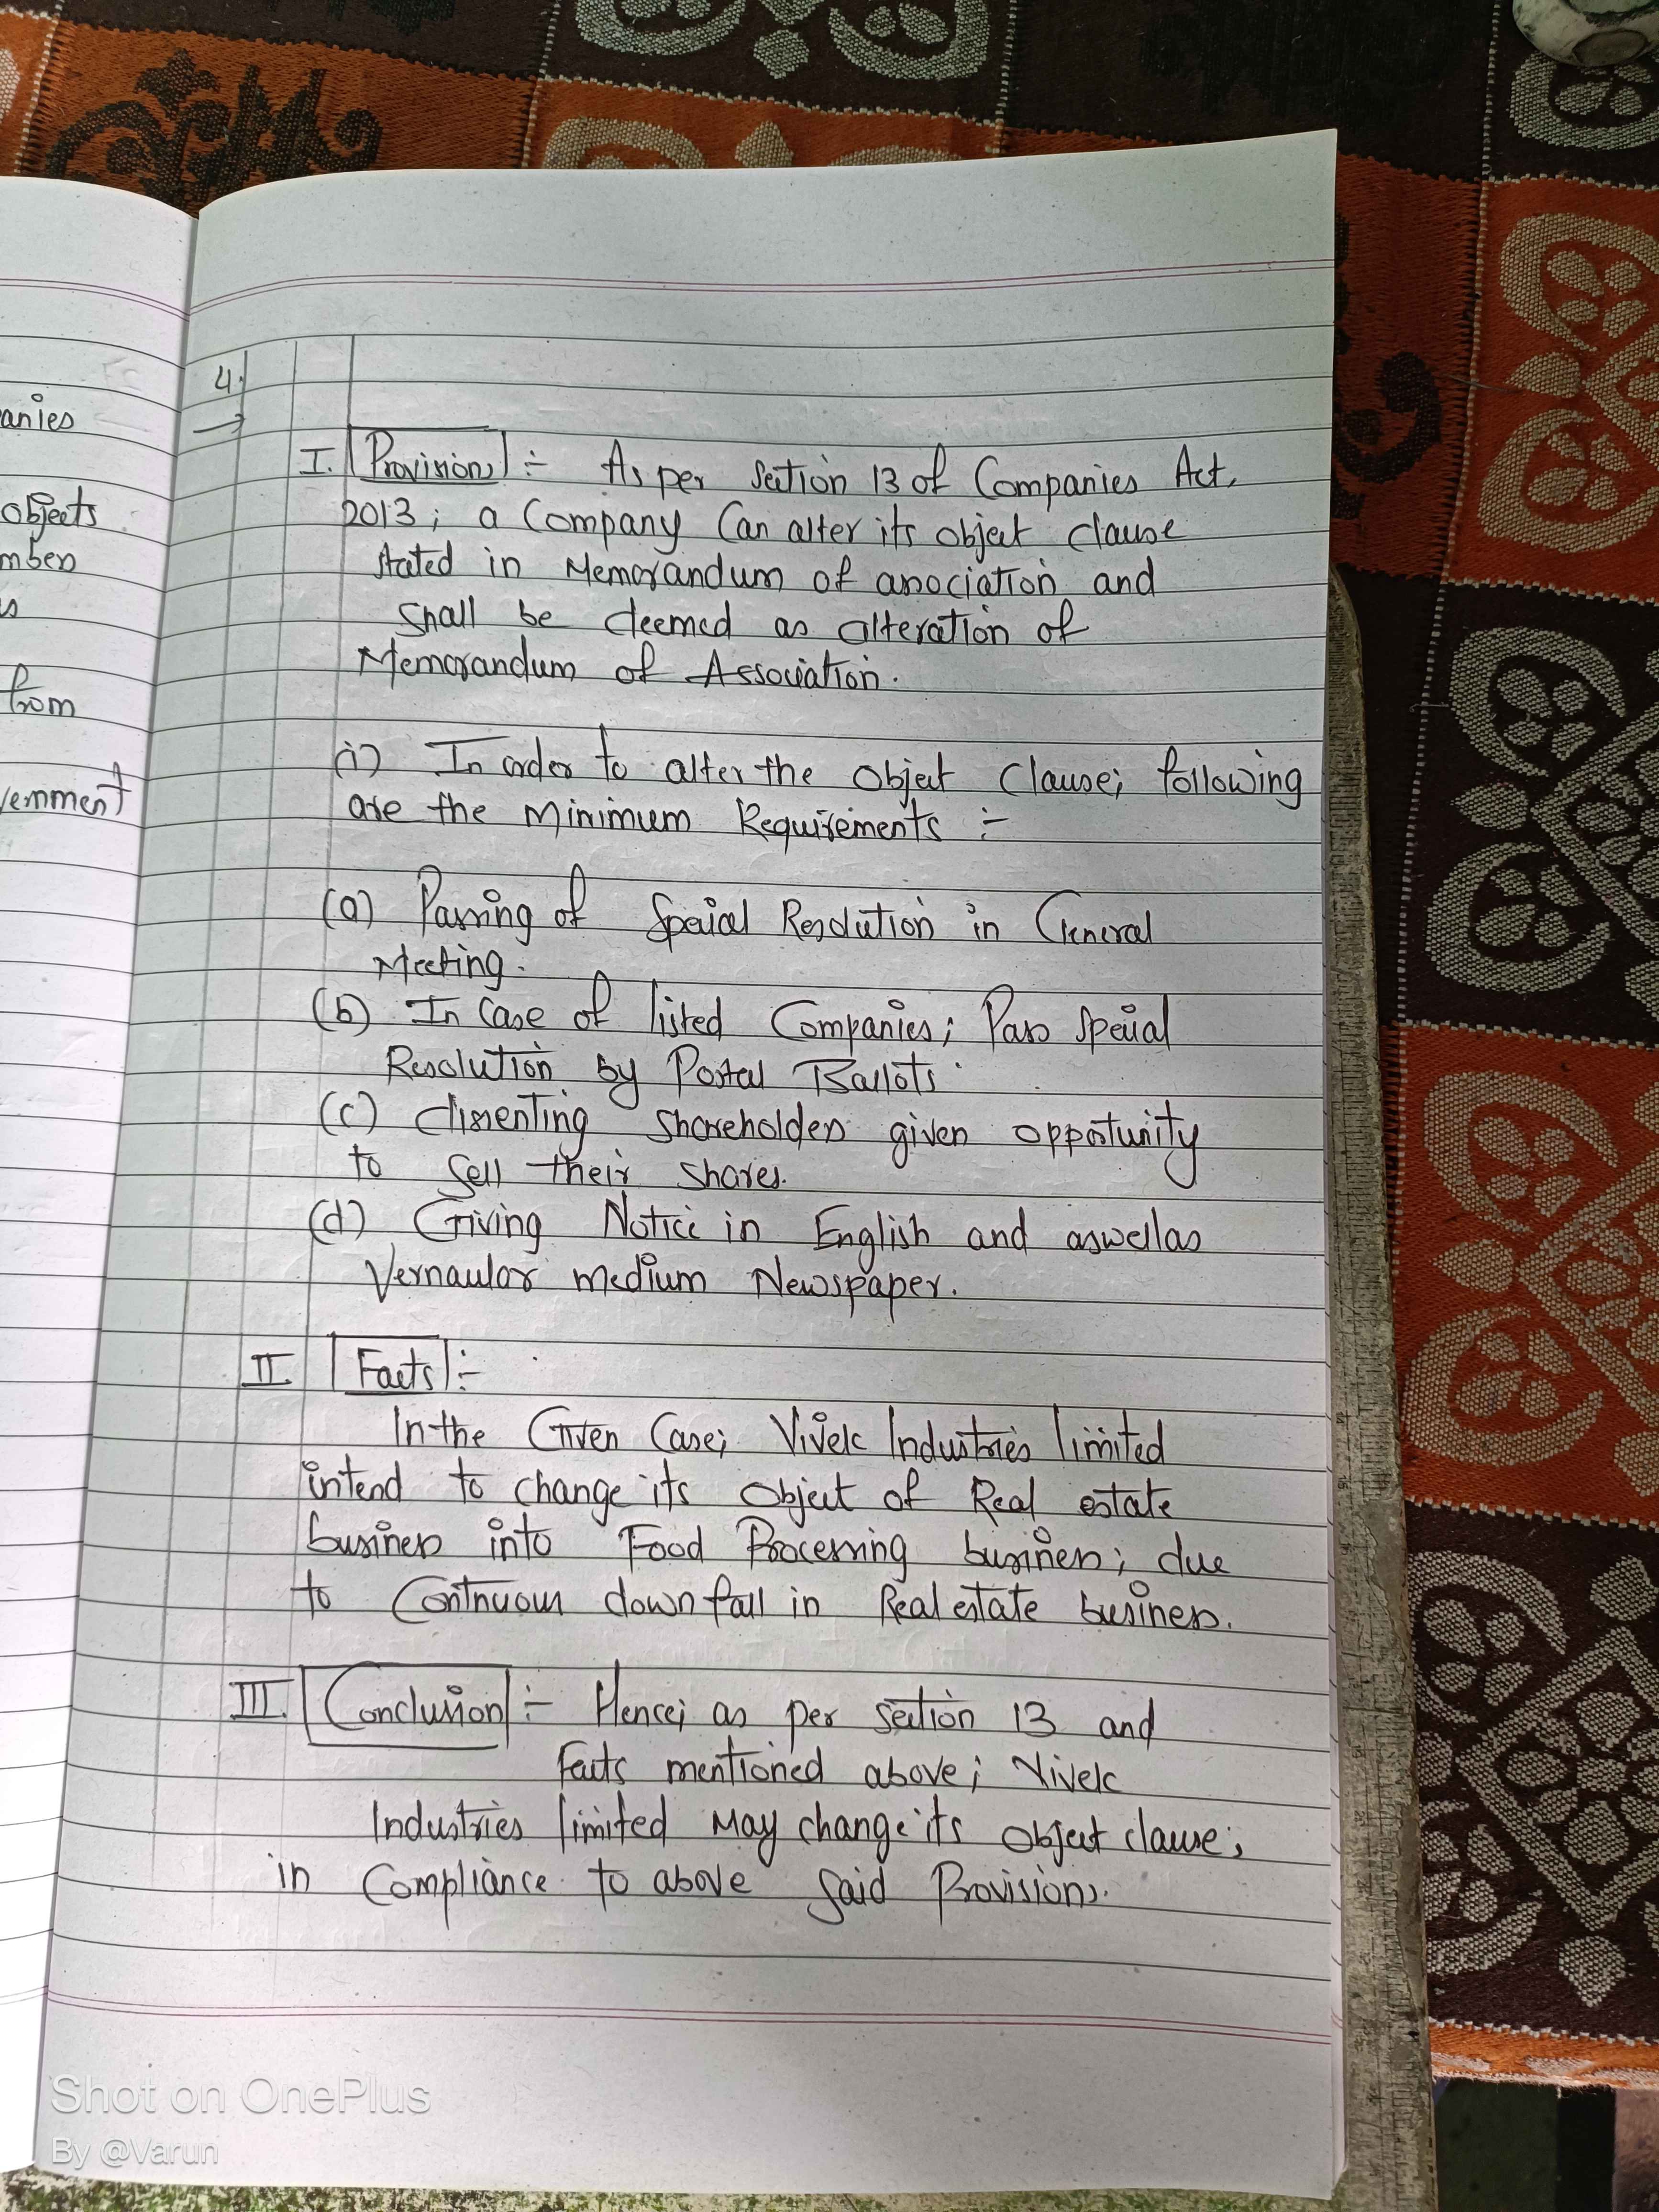 anies
objects
from
4.
→
I. Provisions :- As per Section 13 of Companies Act,
2013; a Company Can alter its object clause
stated in Memorandum of association and
shall be deemed as alteration of
Memorandum of Association.
(i) In order to alter the Object Clause; following
are the Minimum Requirements :-
(a) Passing of Special Resolution in General
Meeting.
(b) In Case of listed Companies; Pass Special
Resolution by Postal Ballots.
(c) dissenting shareholders given opportunity
to sell their shares.
(d) Giving Notice in English and aswellas
Vernaular medium Newspaper.
II. Facts :-
In the Given Case; Vivek Industries limited
intend to change its Object of Real estate
business into Food Processing business; due
to Contnuous downfall in Real estate business.
III. Conclusion :- Hence; as per section 13 and
Facts mentioned above; Vivek
Industries limited May change its object clause;
in Compliance to above said Provisions.
Shot on OnePlus
By @Varun